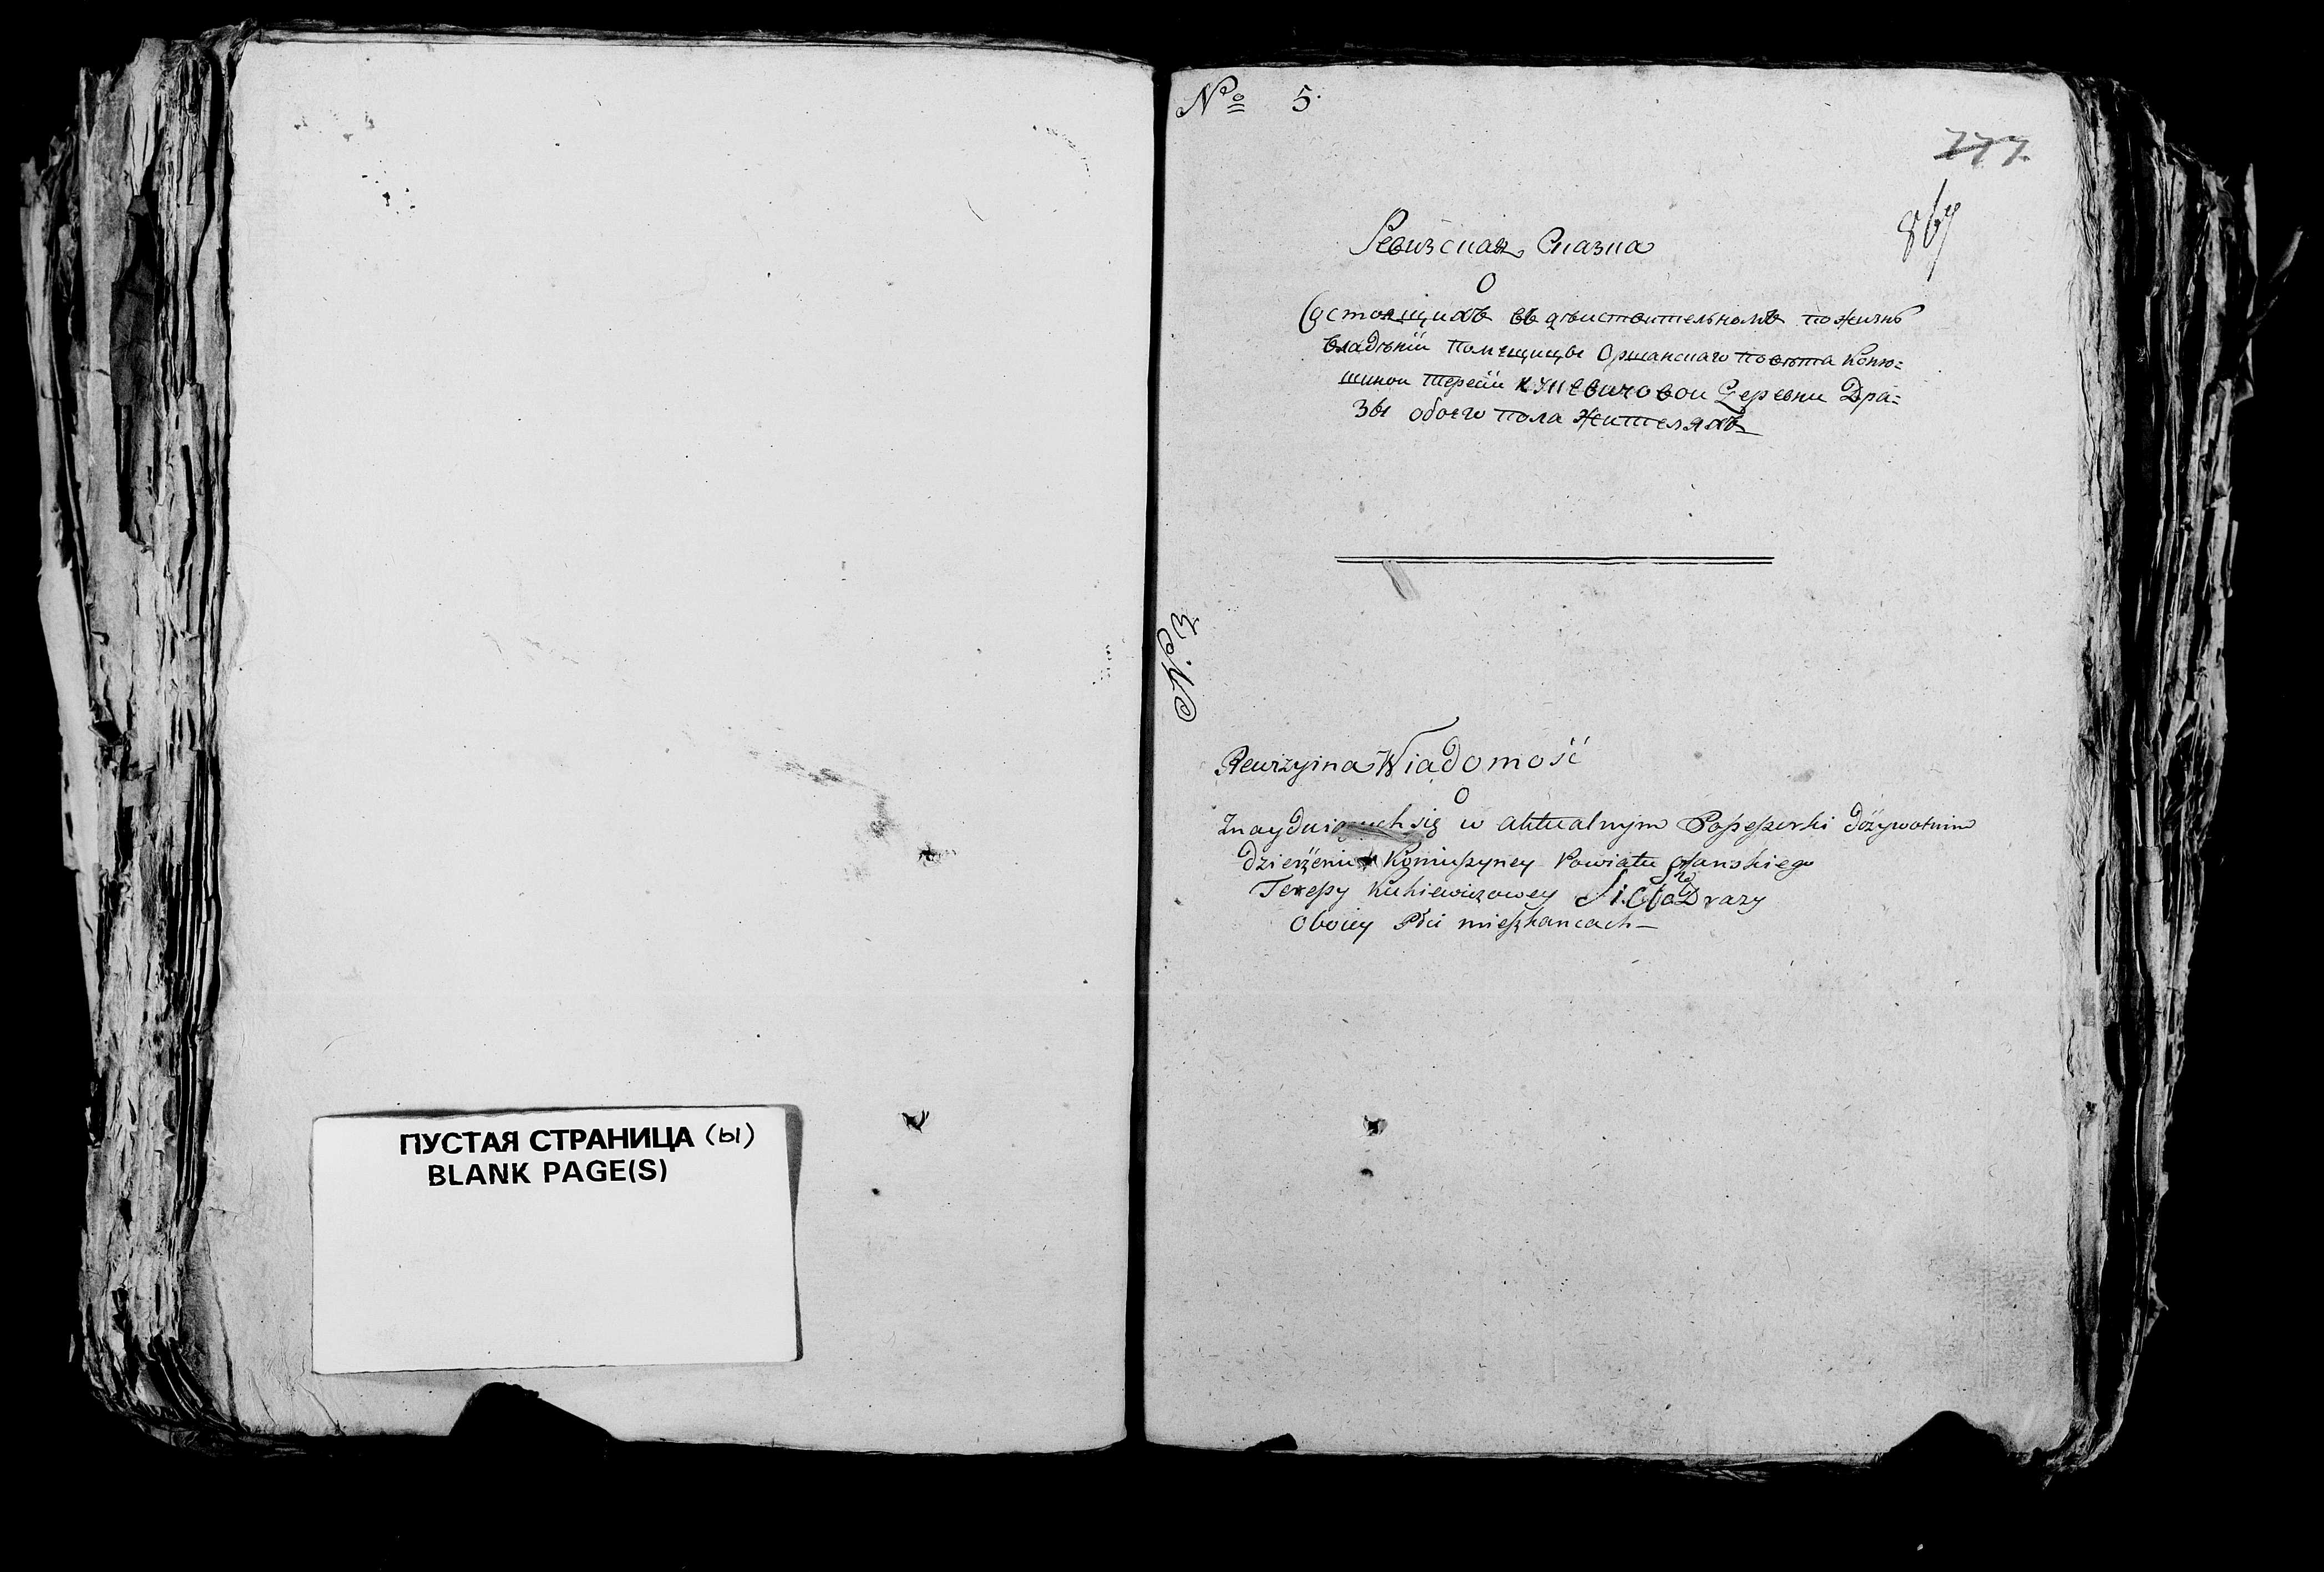 ПУСТАЯ СТРАНИЦА (ы)
BLANK PAGE(S)
№ 5.
777.
867
Ревизская Сказка
О
Состоящихъ въ дѣиствительномъ пожизнь
владѣніи помещицы Оршанскаго повѣта Коню=
шинои Терезіи Кукевичовои Деревни Дра=
зы обоего пола жителяхъ
№ 3
Rewizyina Wiadomość
O
Znayduiących się w aktualnym Possessorki dożywotnim
dzierżeniu Koniuszyney Powiatu Orszanskiego
Teressy Kukiewiczowey Sioła Drazy
Oboiey Płci mieszkancach